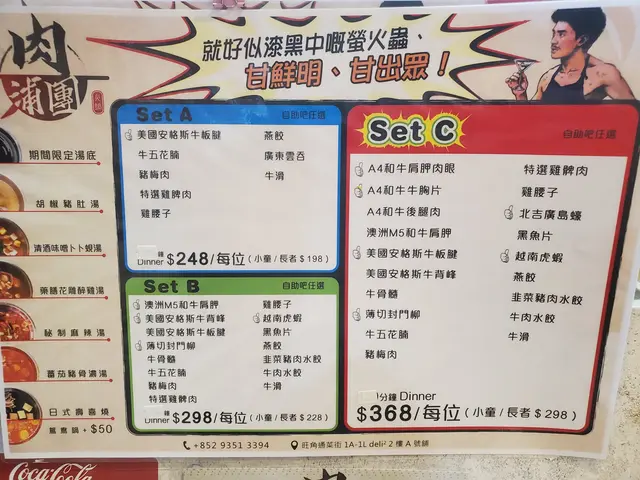 肉
浦團
就好似漆黑中嘅螢火蟲、
甘鮮明、甘出眾！
期間限定湯底
胡椒豬肚湯
清酒味噌卜卜蜆湯
藥膳花雕醉雞湯
秘制麻辣湯
番茄豬骨濃湯
日式壽喜燒
鴛鴦鍋 + $50
Set A 自助吧任選
美國安格斯牛板腱 燕餃
牛五花腩 廣東雲吞
豬梅肉 牛滑
特選雞脾肉
雞腰子
鐘
Dinner $248/每位 (小童/長者 $198)
Set B 自助吧任選
澳洲M5和牛肩胛 雞腰子
美國安格斯牛背峰 越南虎蝦
美國安格斯牛板腱 黑魚片
薄切封門柳 燕餃
牛骨髓 韭菜豬肉水餃
牛五花腩 牛肉水餃
豬梅肉 牛滑
特選雞脾肉
Dinner $298/每位 (小童/長者 $228)
Set C 自助吧任選
A4和牛肩胛肉眼 特選雞脾肉
A4和牛牛胸片 雞腰子
A4和牛後腿肉 北吉廣島蠔
澳洲M5和牛肩胛 黑魚片
美國安格斯牛板腱 越南虎蝦
美國安格斯牛背峰 燕餃
牛骨髓 韭菜豬肉水餃
薄切封門柳 牛肉水餃
牛五花腩 牛滑
豬梅肉
分鐘 Dinner
$368/每位 (小童/長者 $298)
+852 9351 3394 旺角通菜街 1A-1L deli² 2 樓 A 號舖
Coca-Cola